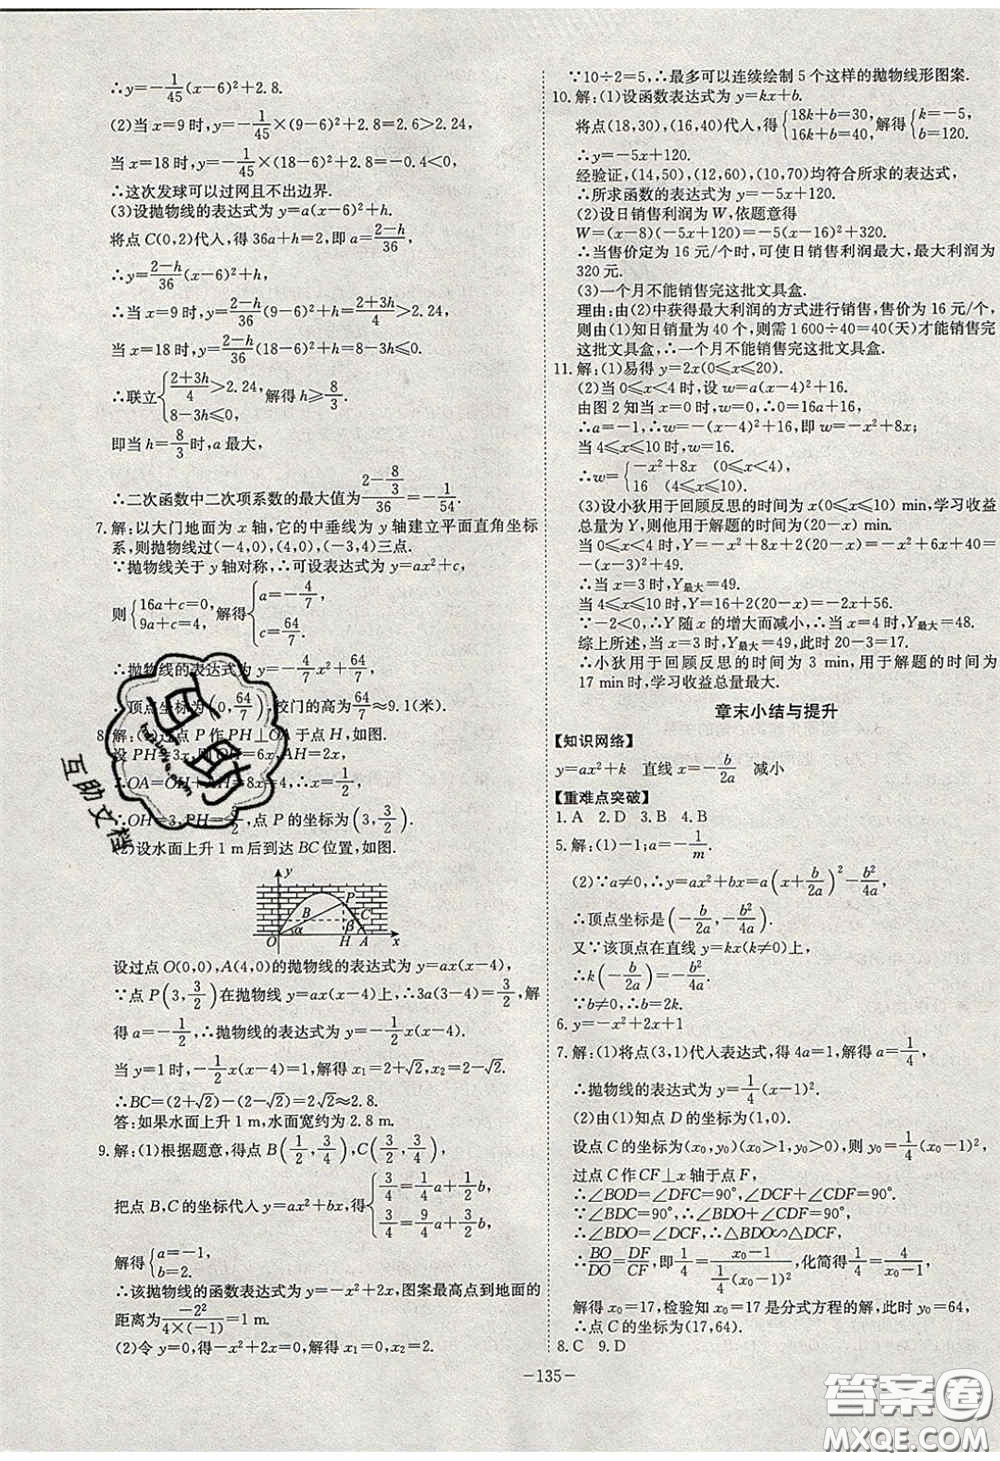 ∴y=-1/45(x-6)²+2.8.
(2)当x=9时,y=-1/45×(9-6)²+2.8=2.6>2.24,
当x=18时,y=-1/45×(18-6)²+2.8=-0.4<0,
∴这次发球可以过网且不出边界.
(3)设抛物线的表达式为y=a(x-6)²+h.
将点C(0,2)代人,得36a+h=2,即a=(2-h)/36,
∴y=(2-h)/36(x-6)²+h,
∴当x=9时,y=(2-h)/36(9-6)²+h=(2+3h)/4>2.24,
当x=18时,y=(2-h)/36(18-6)²+h=8-3h≤0,
∴联立{(2+3h)/4>2.24, 8-3h≤0, 解得h≥8/3.
即当h=8/3时,a最大,
∴二次函数中二次项系数的最大值为(2-8/3)/36=-1/54.
7.解:以大门地面为x轴,它的中垂线为y轴建立平面直角坐标
系,则抛物线过(-4,0),(4,0),(-3,4)三点.
∵抛物线关于y轴对称,∴可设表达式为y=ax²+c,
则{16a+c=0, 9a+c=4, 解得{a=-4/7, c=64/7.
∴抛物线的表达式为y=-4/7x²+64/7.
∴顶点坐标为(0,64/7),校门的高为64/7≈9.1(米).
8.解:(1)过点P作PH⊥OA于点H,如图.
设PH=3x,则OH=6x,AH=2x,
∴OA=OH+AH=8x=4,∴x=1/2,
∴OH=3,PH=3/2,点P的坐标为(3,3/2).
(2)设水面上升1m后到达BC位置,如图.
y
B P C
α β
O H A x
设过点O(0,0),A(4,0)的抛物线的表达式为y=ax(x-4),
∵点P(3,3/2)在抛物线y=ax(x-4)上,∴3a(3-4)=3/2,解
得a=-1/2,∴抛物线的表达式为y=-1/2x(x-4).
当y=1时,-1/2x(x-4)=1,解得x₁=2+√2,x₂=2-√2.
∴BC=(2+√2)-(2-√2)=2√2≈2.8.
答:如果水面上升1m,水面宽约为2.8m.
9.解:(1)根据题意,得点B(1/2,3/4),C(3/2,3/4),
把点B,C的坐标代人y=ax²+bx,得{3/4=1/4a+1/2b, 3/4=9/4a+3/2b,
解得{a=-1, b=2.
∴该抛物线的函数表达式为y=-x²+2x,图案最高点到地面的
距离为-2²/(4×(-1))=1m.
(2)令y=0,即-x²+2x=0,解得x₁=0,x₂=2.
∵10÷2=5,∴最多可以连续绘制5个这样的抛物线形图案.
10.解:(1)设函数表达式为y=kx+b.
将点(18,30),(16,40)代人,得{18k+b=30, 16k+b=40, 解得{k=-5, b=120.
∴y=-5x+120.
经验证,(14,50),(12,60),(10,70)均符合所求的表达式,
∴所求函数的表达式为y=-5x+120.
(2)设日销售利润为W,依题意得
W=(x-8)(-5x+120)=-5(x-16)²+320.
∴当售价定为16元/个时,可使日销售利润最大,最大利润为
320元.
(3)一个月不能销售完这批文具盒.
理由:由(2)中获得最大利润的方式进行销售,售价为16元/个,
则由(1)知日销量为40个,则需1600÷40=40(天)才能销售完
这批文具盒,∴一个月不能销售完这批文具盒.
11.解:(1)易得y=2x(0≤x≤20).
(2)当0≤x<4时,设w=a(x-4)²+16.
由图2知当x=0时,w=0,∴0=16a+16,
∴a=-1,∴w=-(x-4)²+16,即w=-x²+8x;
当4≤x≤10时,w=16.
∴w={-x²+8x (0≤x<4), 16 (4≤x≤10).
(3)设小狄用于回顾反思的时间为x(0≤x≤10)min,学习收
益总量为Y,则她用于解题的时间为(20-x)min.
当0≤x<4时,Y=-x²+8x+2(20-x)=-x²+6x+40=
-(x-3)²+49.
∴当x=3时,Y最大=49.
当4≤x≤10时,Y=16+2(20-x)=-2x+56.
∵-2<0,∴Y随x的增大而减小,∴当x=4时,Y最大=48.
综上所述,当x=3时,Y最大=49,此时20-3=17.
∴小狄用于回顾反思的时间为3min,用于解题的时间为
17min时,学习收益总量最大.
章末小结与提升
【知识网络】
y=ax²+k 直线x=-b/2a 减小
【重难点突破】
1.A 2.D 3.B 4.B
5.解:(1)-1;a=-1/m.
(2)∵a≠0,∴y=ax²+bx=a(x+b/2a)²-b²/4a,
∴顶点坐标是(-b/2a,-b²/4a).
又∵该顶点在直线y=kx(k≠0)上,
∴k(-b/2a)=-b²/4a.
∵b≠0,∴b=2k.
6.y=-x²+2x+1
7.解:(1)将点(3,1)代人表达式,得4a=1,解得a=1/4,
∴抛物线的表达式为y=1/4(x-1)².
(2)由(1)知点D的坐标为(1,0).
设点C的坐标为(x₀,y₀)(x₀>1,y₀>0),则y₀=1/4(x₀-1)²,
过点C作CF⊥x轴于点F,
∴∠BOD=∠DFC=90°,∠DCF+∠CDF=90°.
∵∠BDC=90°,∴∠BDO+∠CDF=90°,
∴∠BDO=∠DCF,∴△BDO∽△DCF,
∴BO/DO=DF/CF,即(1/4)/1=(x₀-1)/(1/4(x₀-1)²),化简得1/4=4/(x₀-1),
解得x₀=17,检验知x₀=17是分式方程的解,此时y₀=64,
∴点C的坐标为(17,64).
8.C 9.D
-135-
互助
互助文档
答案圈
MXQE.COM